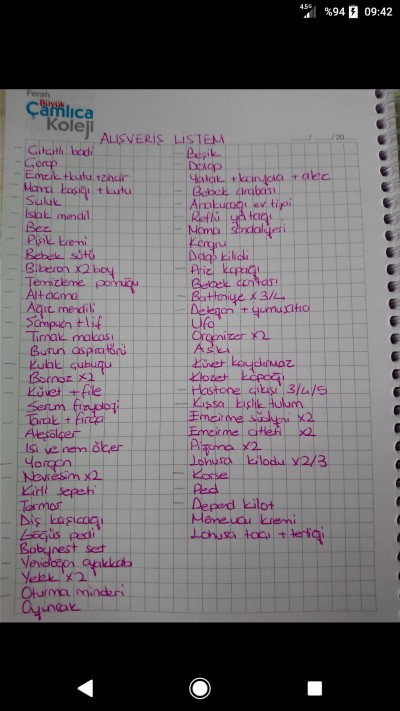 4.5G %94 09:42
Ferah
Büyük
Çamlıca
Koleji
ALIŞVERİŞ LİSTEM
...../...../20
- Çıtçıtlı badi
- Çorap
- Emzik + kutu + zincir
- Mama kaşığı + kutu
- Suluk
- Islak mendil
- Bez
- Pişik kremi
- Bebek sütü
- Biberon x2 boy
- Temizleme pamuğu
- Alt açma
- Ağız mendili
- Şampuan + lif
- Tırnak makası
- Burun aspiratörü
- Kulak çubuğu
- Bornoz x2
- Küvet + file
- Serum fizyoloji
- Tarak + fırça
- Ateşölçer
- Isı ve nem ölçer
- Yorgan
- Nevresim x2
- Kirli sepeti
- Termos
- Diş kaşıcağı
- Göğüs pedi
- Babynest set
- Yenidoğan ayakkabı
- Yelek x2
- Oturma minderi
- Oyuncak
- Beşik
- Dolap
- Yatak + karyola + alez
- Bebek arabası
- Anakucağı ev tipi
- Reflü yatağı
- Mama sandalyesi
- Kanguru
- Dolap kilidi
- Priz kapağı
- Bebek çantası
- Battaniye x3/4
- Deterjan + yumuşatıcı
- Ufo
- Organizer x2
- Askı
- Küvet kaydırmaz
- Klozet kapağı
- Hastane çıkışı 3/4/5
- Kışsa kışlık tulum
- Emzirme südyeni x2
- Emzirme atleti x2
- Pijama x2
- Lohusa kilodu x2/3
- Korse
- Ped
- Depend kilot
- Lohusa tacı + terliği